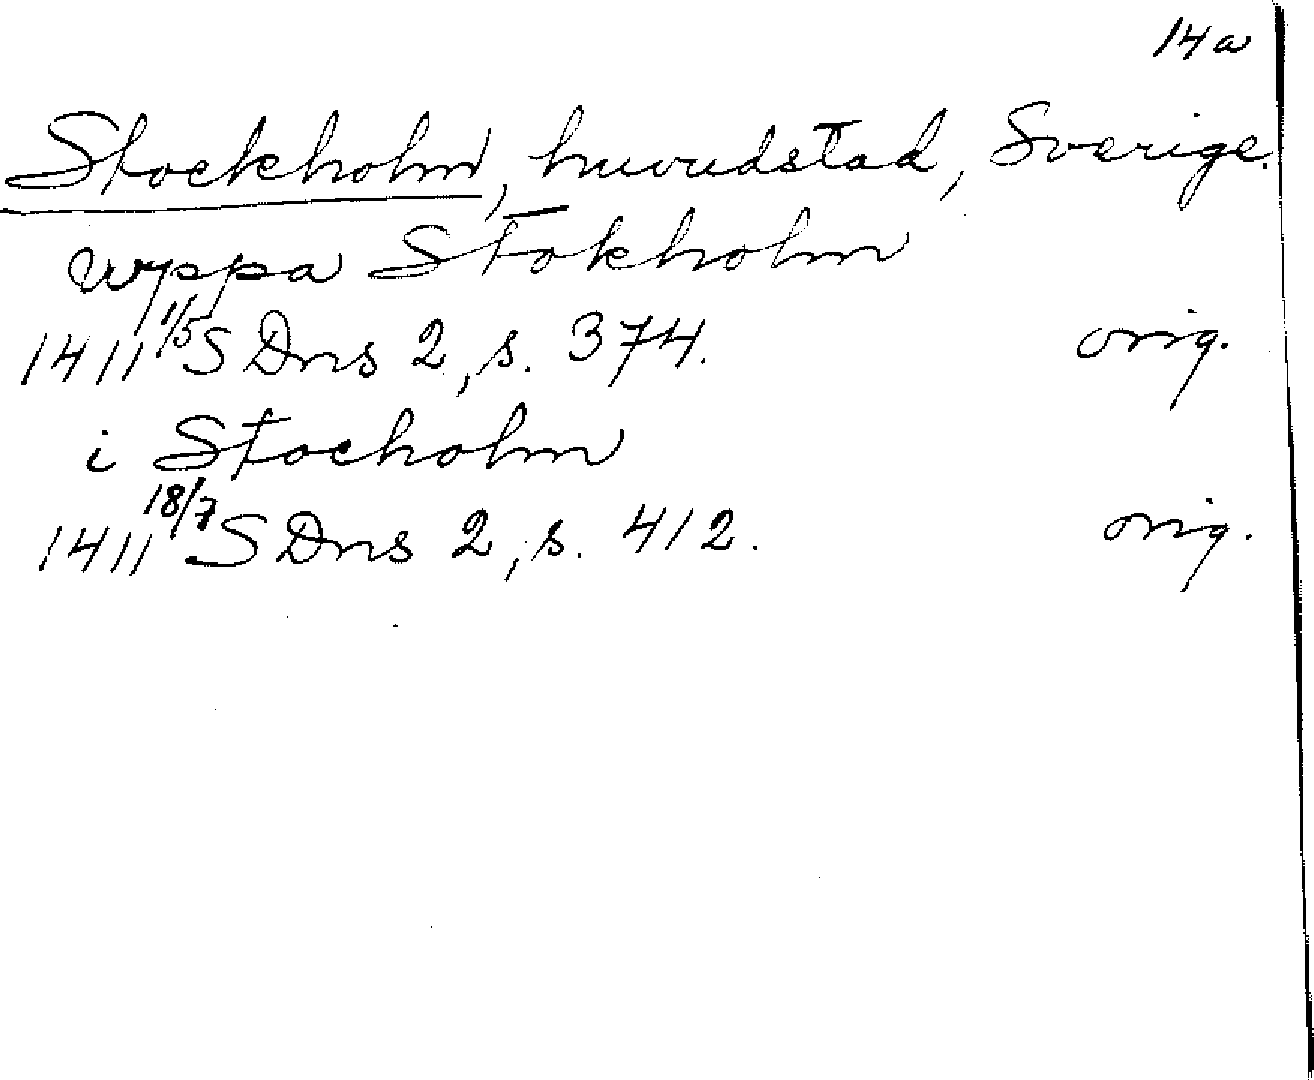 14a
Stockholm, huvudstad, Sverige.
uppa Stokholm
1411 1/5 SDns 2, s. 374. orig.
i Stocholm
1411 18/7 SDns 2, s. 412. orig.